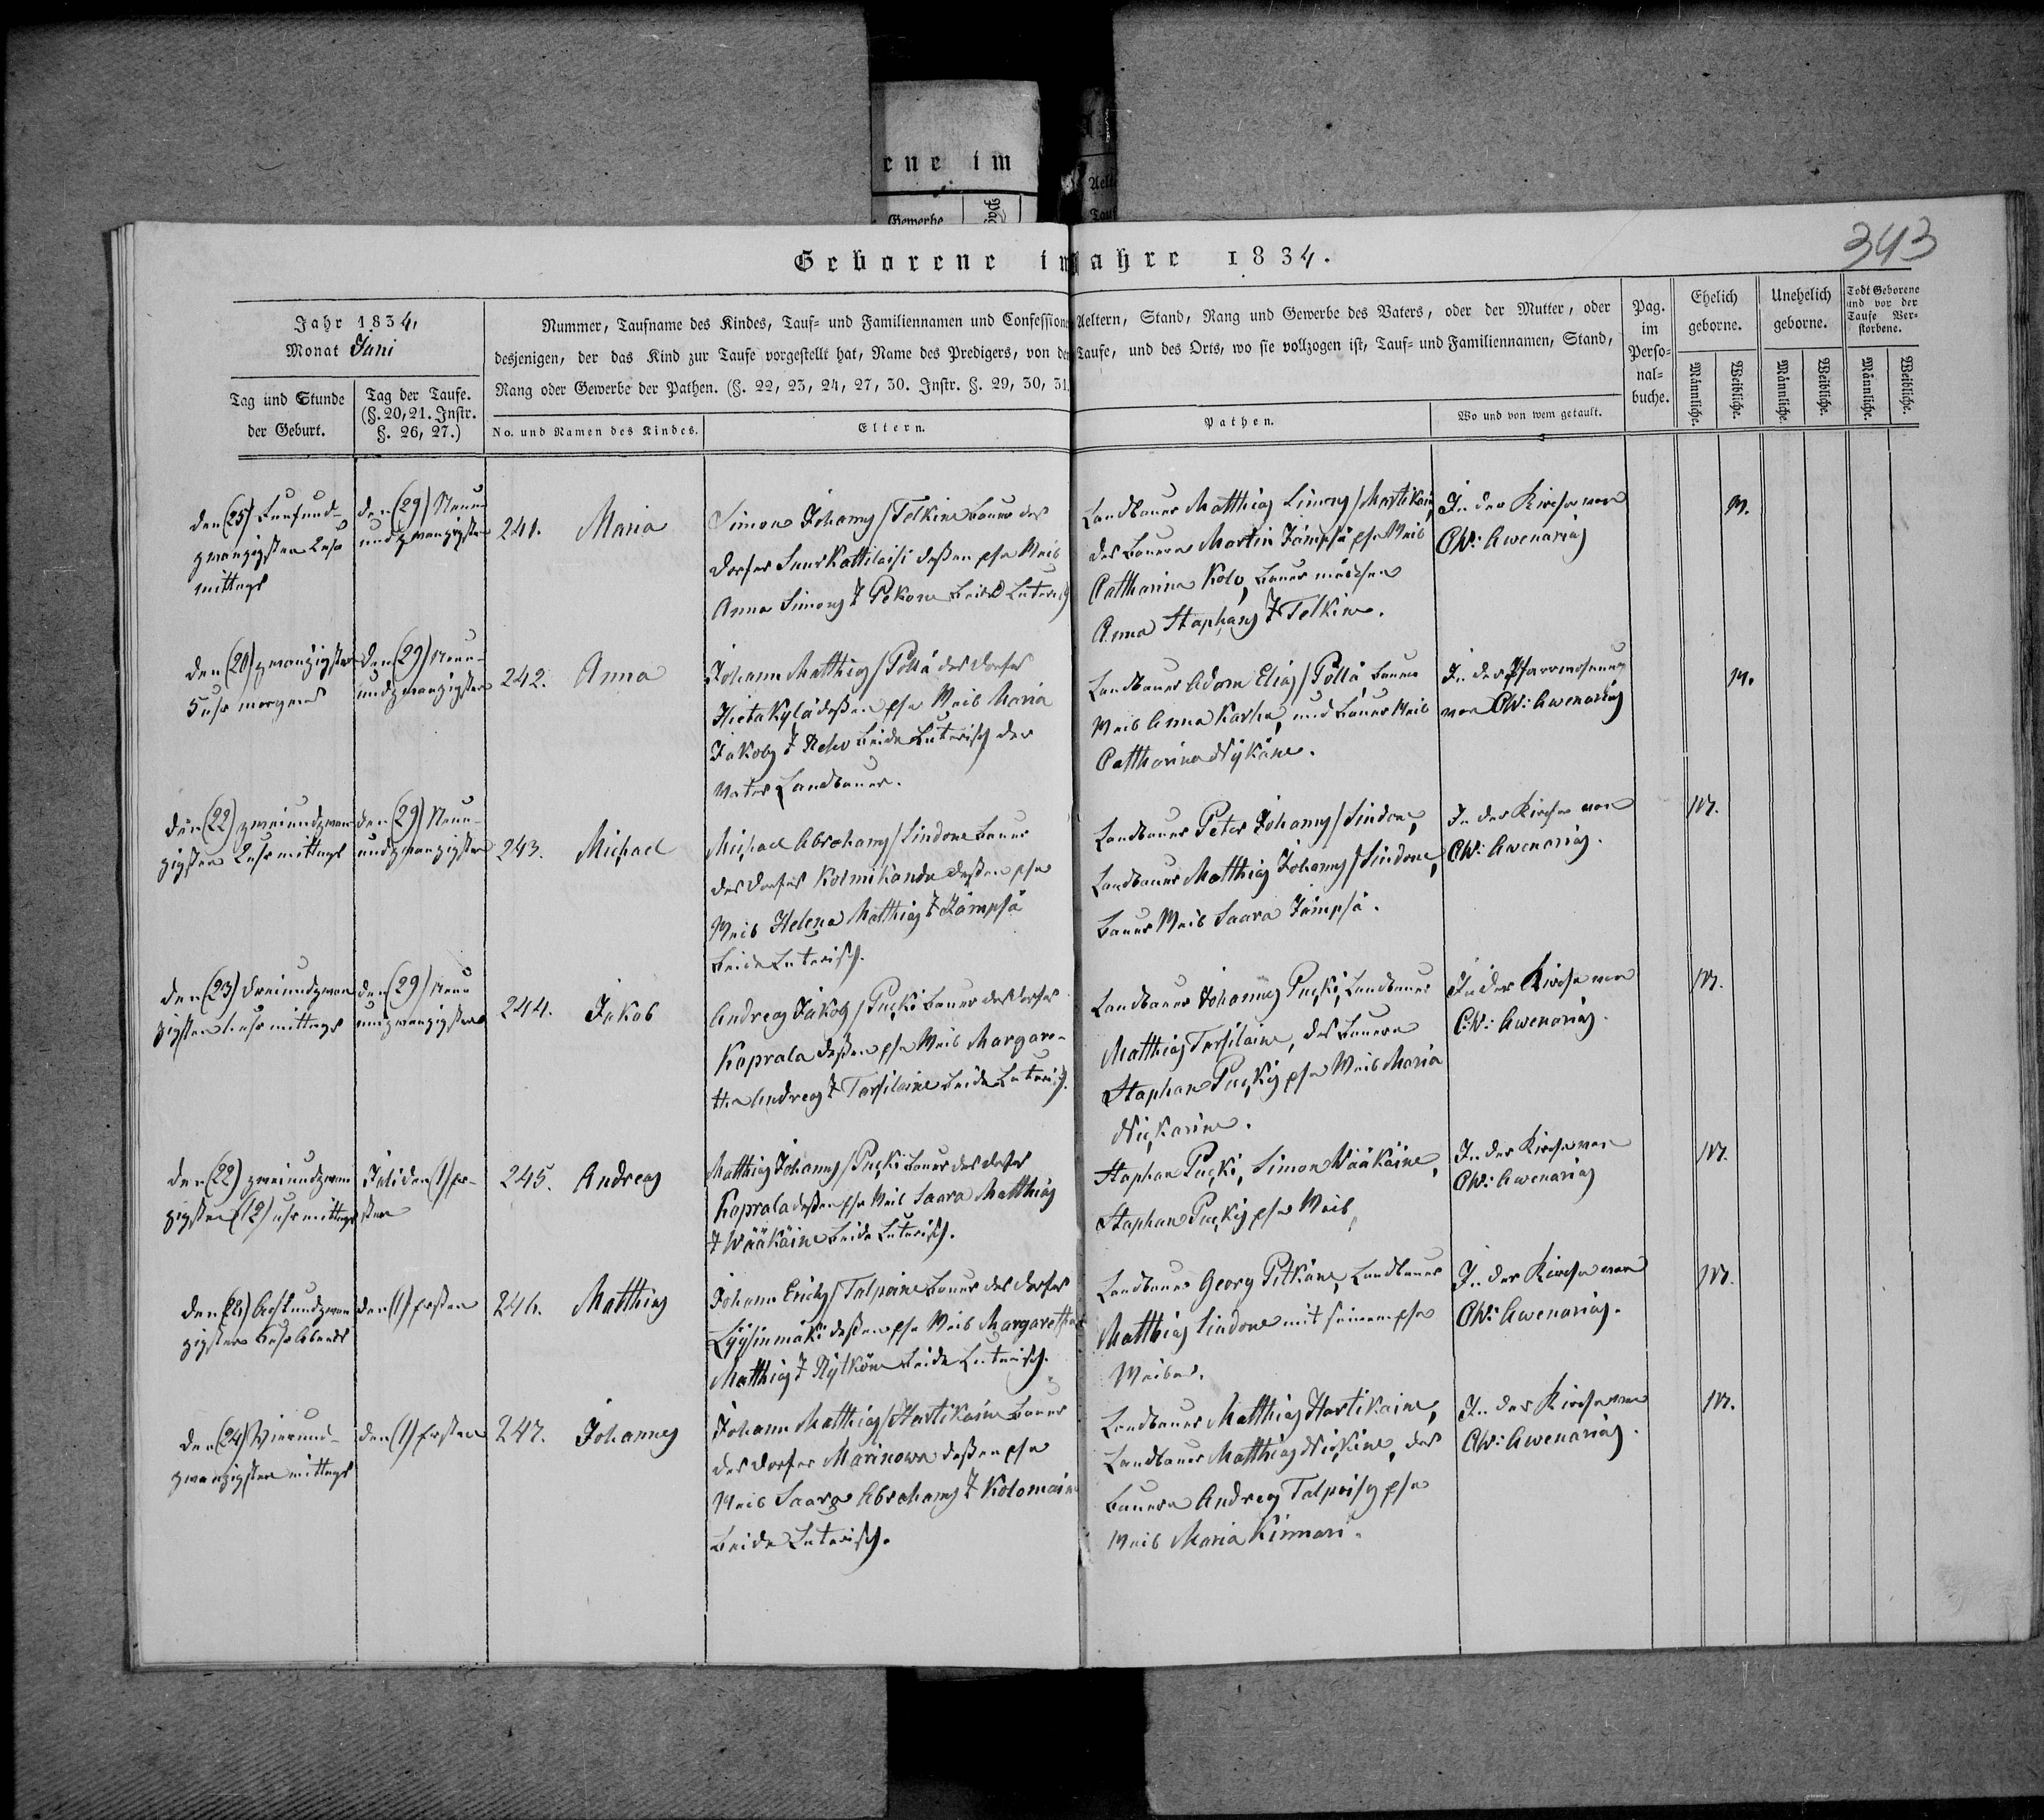 ene im
Gewerbe
343
Geborene im Jahre 1834.
Jahr 1834,
Monat Juni
Tag und Stunde
der Geburt.
Tag der Taufe.
(§. 20, 21. Instr.
§. 26, 27.)
Nummer, Taufname des Kindes, Tauf- und Familiennamen und Confession Aeltern, Stand, Rang und Gewerbe des Vaters, oder der Mutter, oder
desjenigen, der das Kind zur Taufe vorgestellt hat, Name des Predigers, von der Taufe, und des Orts, wo sie vollzogen ist, Tauf- und Familiennamen, Stand,
Rang oder Gewerbe der Pathen. (§. 22, 23, 24, 27, 30. Instr. §. 29, 30, 31.
No. und Namen des Kindes.
Eltern.
Pathen.
Wo und von wem getauft.
Pag.
im
Perso-
nal-
buche.
Ehelich
geborne.
Unehelich
geborne.
Todt Geborene
und vor der
Taufe Ver-
storbene.
Männliche.
Weibliche.
Männliche.
Weibliche.
Männliche.
Weibliche.
den (25) Fünfund-
zwanzigsten
mittags
den (29) Neun
undzwanzigsten
241. Maria
Simon Johanns/Telkine Bauer des
Dorfes Suurkattilaisi deßen Weib
Anna Simons T Pekone beide Luterisch
Landbauer Matthias Simons/Martikain,
des Bauern Martin Jämpsä Weib
Catharina Kolo, Bauer mädchen
Anna Staphans T Telkine.
In der Kirche von
CW: Awenarius
M.
den (20) zwanzigsten
5 uhr morgens
den (29) Neun-
undzwanzigsten
242. Anna
Johann Matthias/Pöllä des Dorfes
Hietakylä deßen Weib Maria
Jakobs T beide Luterisch der
Vater Landbauer.
Landbauer Adam Elias/Pöllä Bauer
Weib Anna Karha, und Bauer Weib
Catharina Nykäne.
In der Pfarrwohnung
von CW: Awenarius
M.
den (22) zweiundzwan
zigsten mittags
den (29) Neun-
undzwanzigsten
243. Michael
Michael Abrahams/Sindone Bauer
des Dorfes Kolmikanda deßen
Weib Helena Matthias T Jämpsä
beide Luterisch.
Landbauer Peter Johanns/Sindone,
Landbauer Matthias Johanns/Sindone,
Bauer Weib Saara Jämpsä.
In der Kirche von
CW: Awenarius.
M.
den (23) dreiundzwan
zigsten mittags
den (29) Neun
undzwanzigsten
244. Jakob
Andreas Jakobs/Puchki Bauer des Dorfes
Kaprala deßen Weib Margare-
tha Andreas T Torsilaine beide Luterisch.
Landbauer Johannes Puchki, Landbauer
Matthias Torsilaine, des Bauern
Staphan Puchkis Weib Maria
Nickarine.
In der Kirche von
CW: Awenarius.
M.
den (22) zweiundzwan
zigsten (12) uhr mittags
Juli den (1) er-
sten
245. Andreas
Matthias Johanns/Puchki Bauer des Dorfes
Kaprala deßen Weib Saara Matthias
T Wääkäine beide Luterisch.
Staphan Puchki, Simon Wääkäine,
Staphan Puchkis Weib
In der Kirche von
CW: Awenarius
M.
den (28) Achtundzwan
zigsten Abends
den (1) ersten
246. Matthias
Johann Erichs/Talpoine Bauer des Dorfes
Lyysinmäki deßen Weib Margaretha
Matthias T Rytköne beide Luterisch.
Landbauer Georg Pitkäne, Landbauer
Matthias Sindone mit seinem
Weibe.
In der Kirche von
CW: Awenarius.
M.
den (24) Vierund-
zwanzigsten mittags
den (1) ersten
247. Johannes
Johann Matthias/Hartikaine Bauer
des Dorfes Marinowa deßen
Weib Saara Abrahams T Kolomaine
beide Luterisch.
Landbauer Matthias Hartikaine,
Landbauer Matthias, des
Bauern Andreas Talpoises
Weib Maria Kinnari.
In der Kirche von
CW: Awenarius.
M.